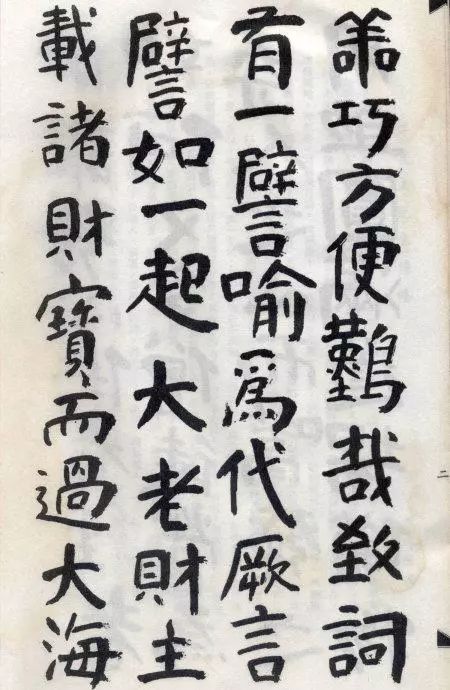 善巧方便難哉致詞
有一譬喻爲代厥言
譬如一起大老財主
載諸財寶而過大海
二